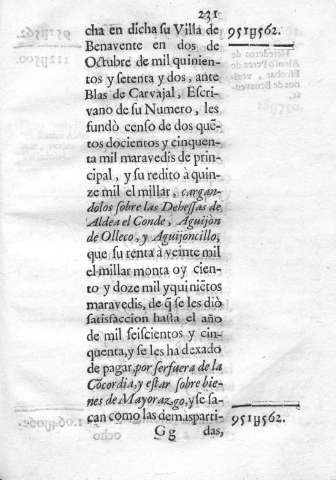 231
cha en dicha su Villa de
951ꝗ562.
Benavente en dos de
Octubre de mil quinien-
tos y setenta y dos, ante
Blas de Carvajal, Escri-
vano de su Numero, les
fundò censo de dos quẽ-
tos docientos y cinquen-
ta mil maravedis de prin-
cipal, y su redito à quin-
ze mil el millar, cargan-
dolos sobre las Dehessas de
Aldea el Conde, Aguijòn
de Olleco, y Aguijoncillo,
que su renta à veinte mil
el millar monta oy cien-
to y doze mil y quiniẽtos
maravedis, de q̃ se les diò
satisfaccion hasta el año
de mil seiscientos y cin-
quenta, y se les ha dexado
de pagar, por ser fuera de la
Cõcordia, y estar sobre bie-
nes de Mayorazgo, y se sa-
can como las demas parti-
951ꝗ562.
Gg
das,